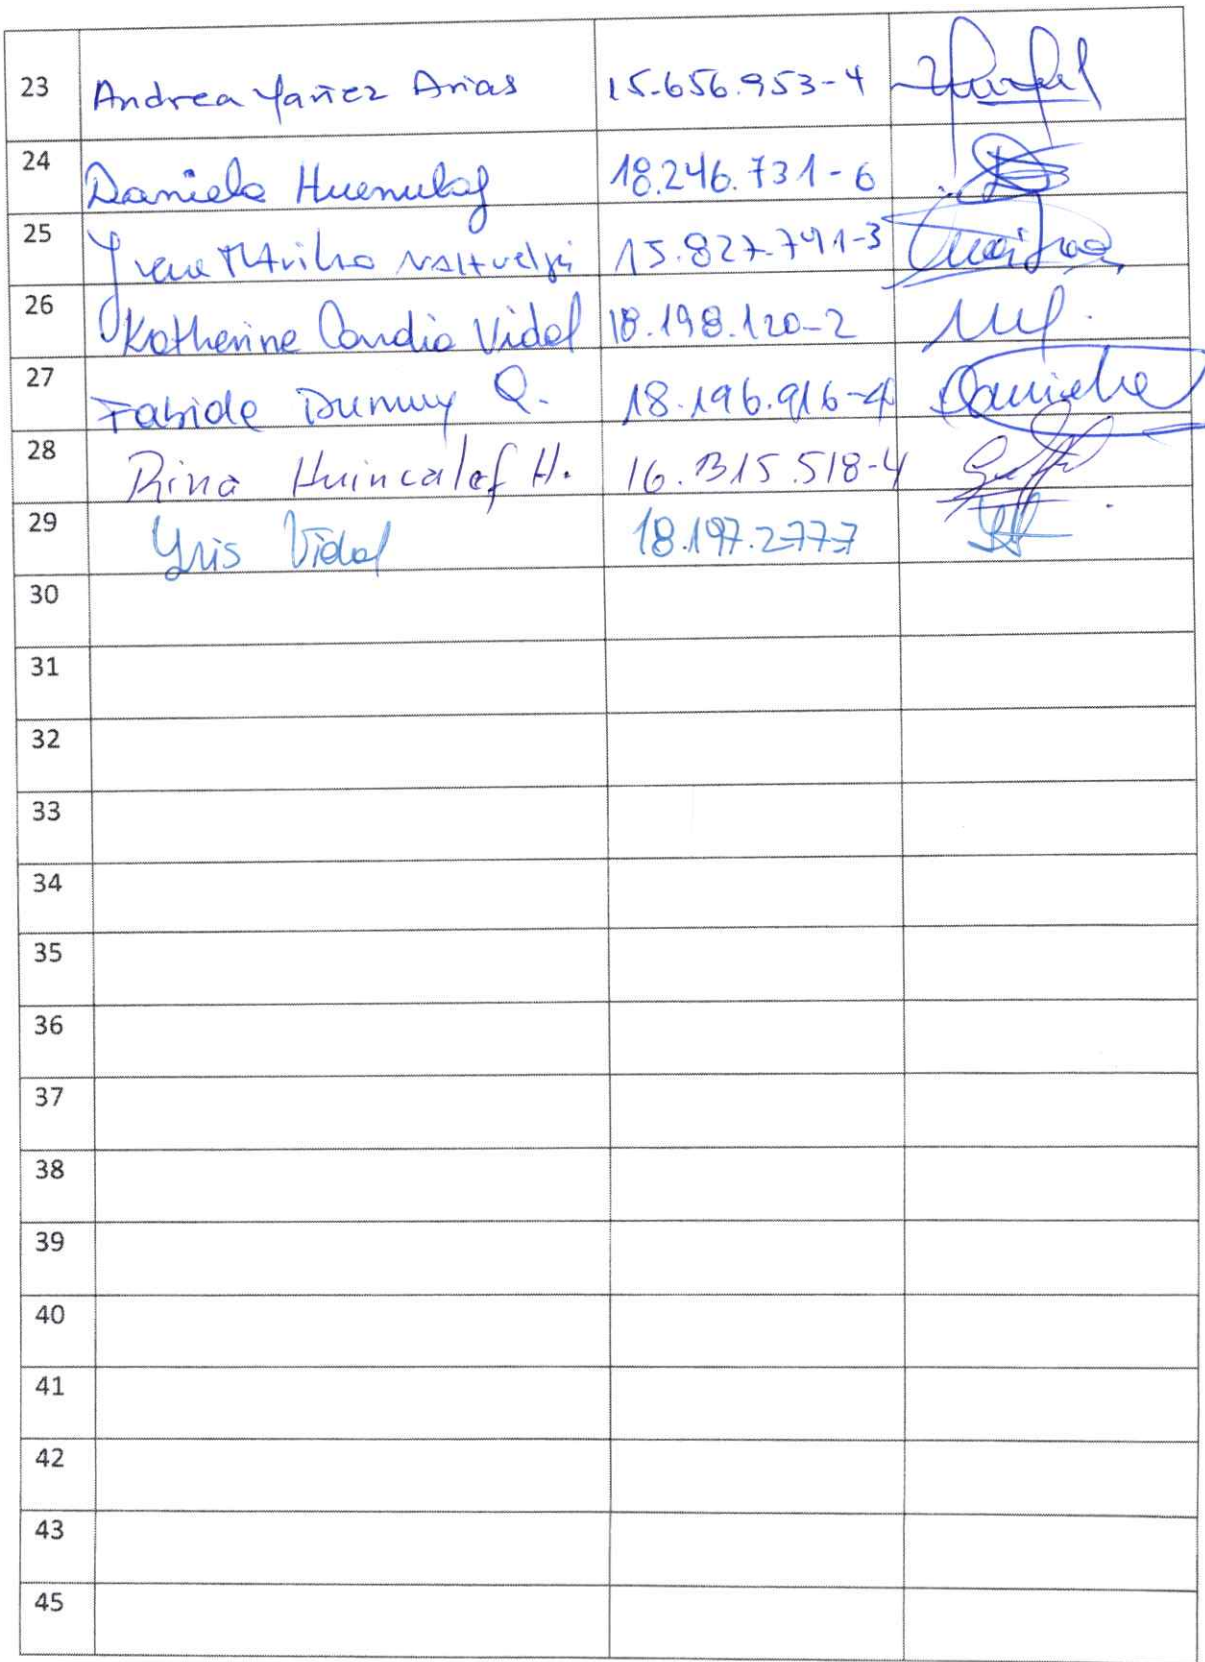 23 Andrea Yañez Arias 15.656.953-4
24 Daniela Huenulaf 18.246.731-6
25 15.827.791-3
26 Katherine Candia Vidal 18.198.120-2
27 18.196.916-4 Daniela
28 Rina Huincalef H. 16.315.518-4
29 Yris Vidal 18.197.277-7
30
31
32
33
34
35
36
37
38
39
40
41
42
43
45